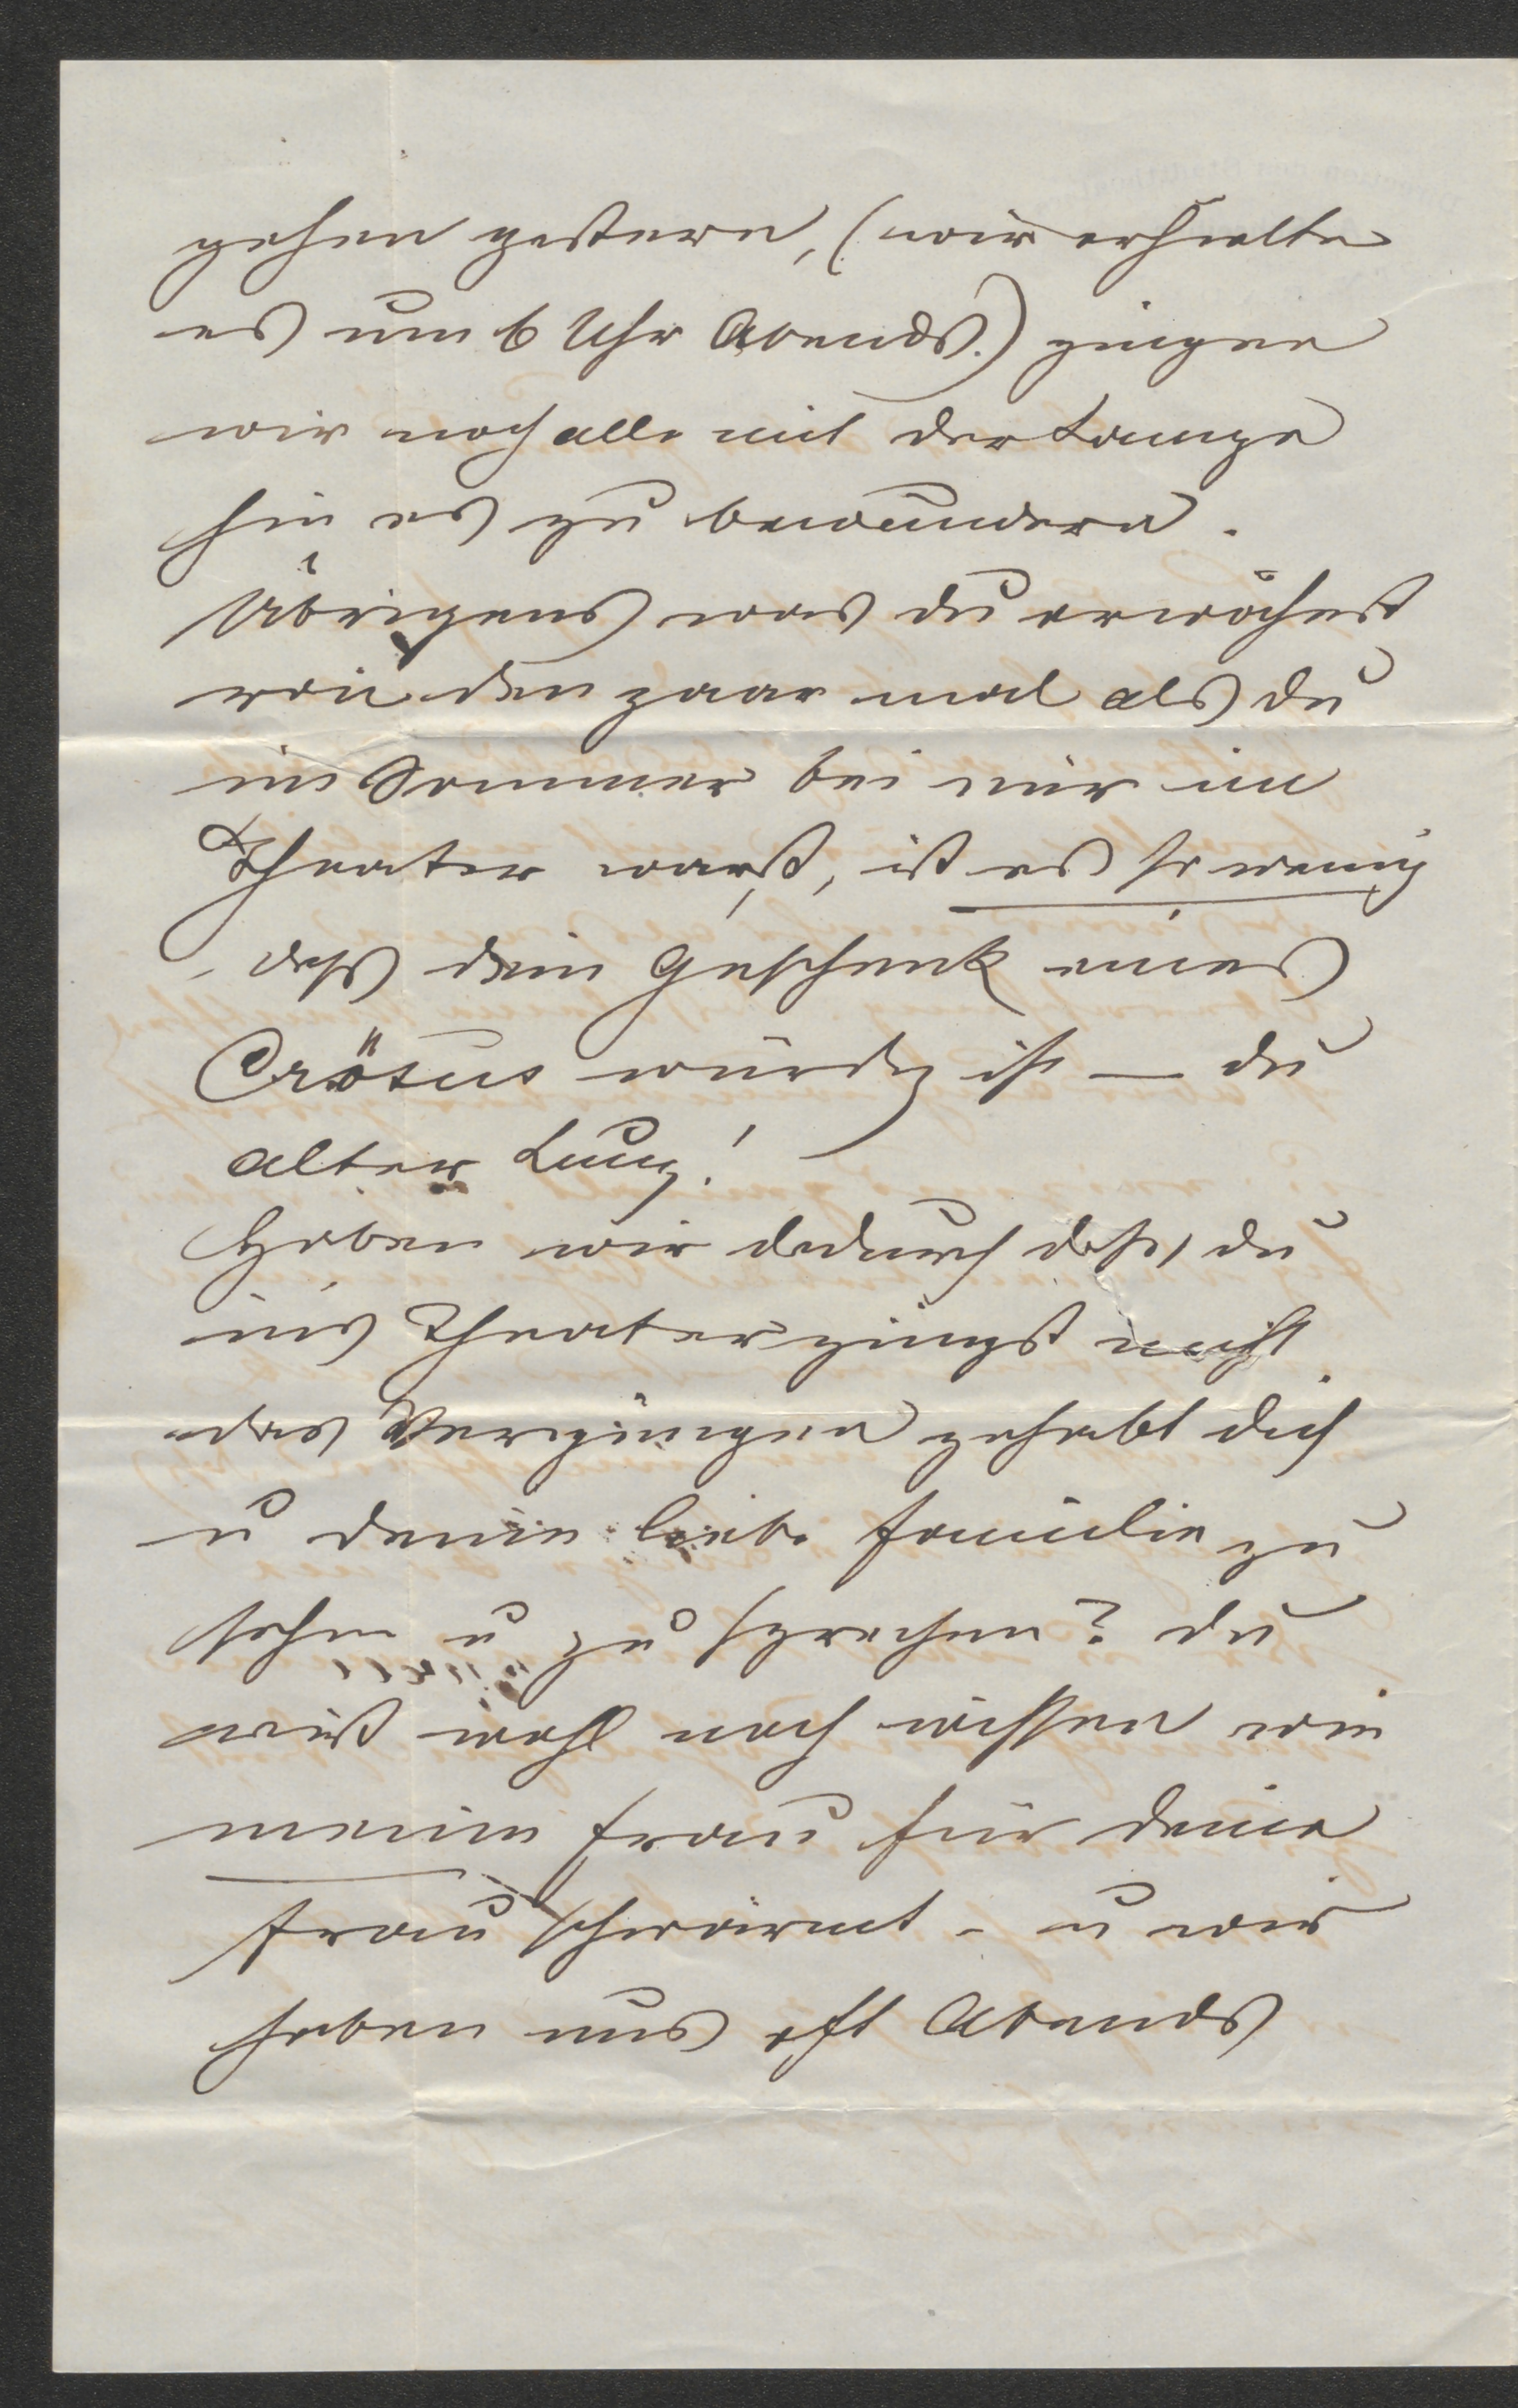 gehen gestern, (wir erhielten
es um 6 Uhr Abends.) gingen
wir noch alle mit der Lampe
hin es zu bewundern.
Übrigens was du erwähnst
von den paar mal als du
im Sommer bei mir im
Theater warst, ist es so wenig
daß dein Geschenk eines
Crösus würdig ist — du
alter Lump!
Haben wir dadurch daß du
ins Theater gingst nicht
das Vergnügen gehabt dich
u deine liebe Familie zu
sehen u zu sprechen? du
wirst wohl noch wissen wie
meine Frau für deine
Frau schwärmt - u wir
haben uns oft Abends